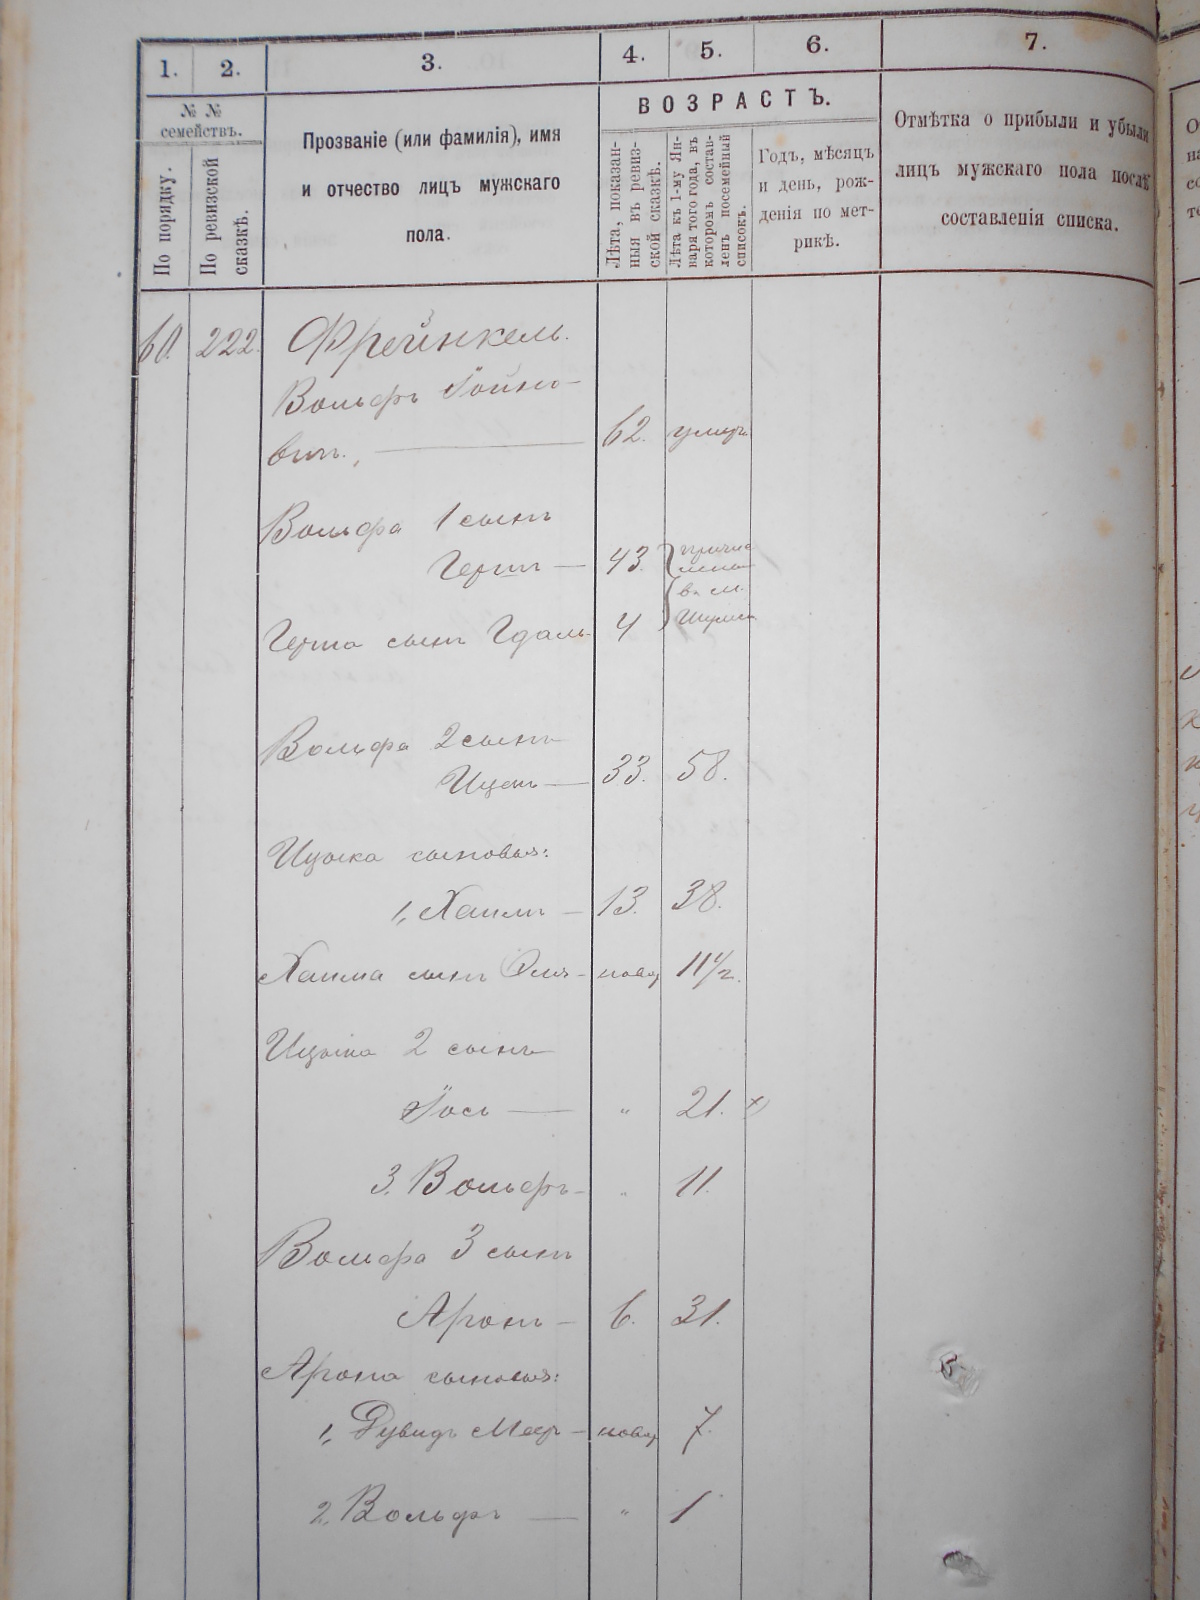 1. 2. 3. 4. 5. 6. 7.
№ №
семействъ.
По порядку.
По ревизской
сказкѣ.
Прозваніе (или фамилія), имя
и отчество лицъ мужскаго
пола.
ВОЗРАСТЪ.
Лѣта, показан-
ныя въ ревиз-
ской сказкѣ.
Лѣта къ 1-му Ян-
варя того года, въ
которомъ состав-
ленъ посемейный
списокъ.
Годъ, мѣсяцъ
и день, рож-
денія по мет-
рикѣ.
Отмѣтка о прибыли и убыли
лицъ мужскаго пола послѣ
составленія списка.
60. 222. Фрейнкель.
Вольфъ
вичъ. — 62. умеръ
Вольфа 1 сынъ
Герш — 43. причис
лены
Герша сынъ Гдаль 4 въ м.
Вольфа 2 сынъ
Ицекъ — 33. 58.
Ицыка сыновья:
1, Хаимъ — 13. 38.
Хаима сынъ — новор 11 1/2.
Ицыка 2 сынъ
Іось — " 21. х)
3, Вольфъ — " 11.
Вольфа 3 сынъ
Аронъ — 6. 31.
Арона сыновья:
1, Дувидъ Меер — новор 7.
2, Вольфъ — " 1